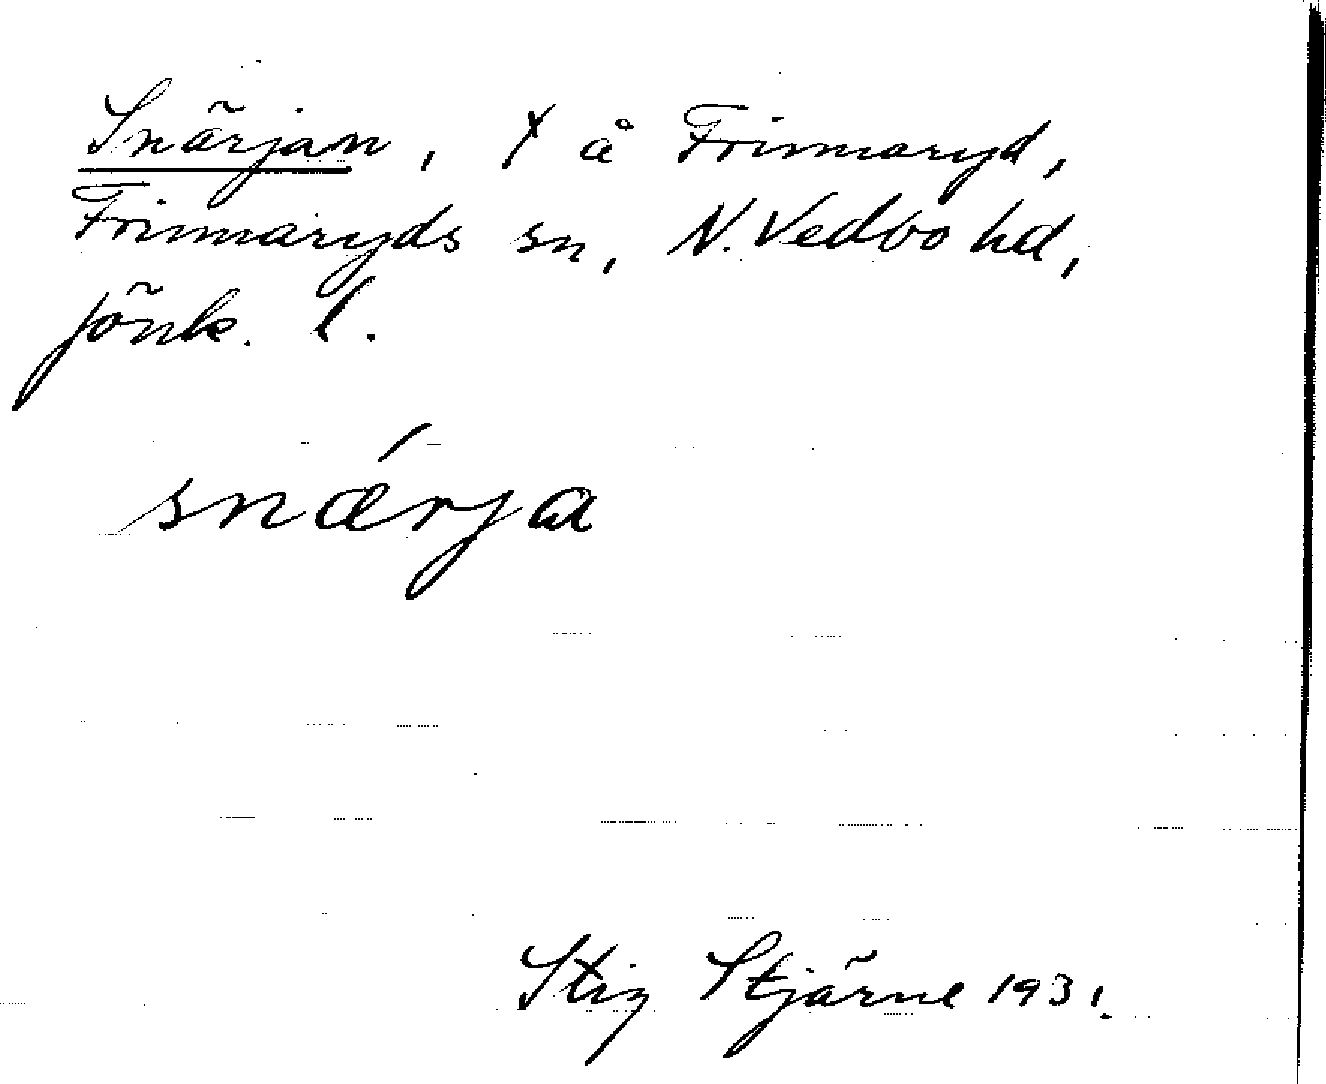 Snärjan, ɤ å Frinnaryd,
Frinnaryds sn, N. Vedbo hd,
Jönk. l.
snǽrja
Stig Stjärne 1931.